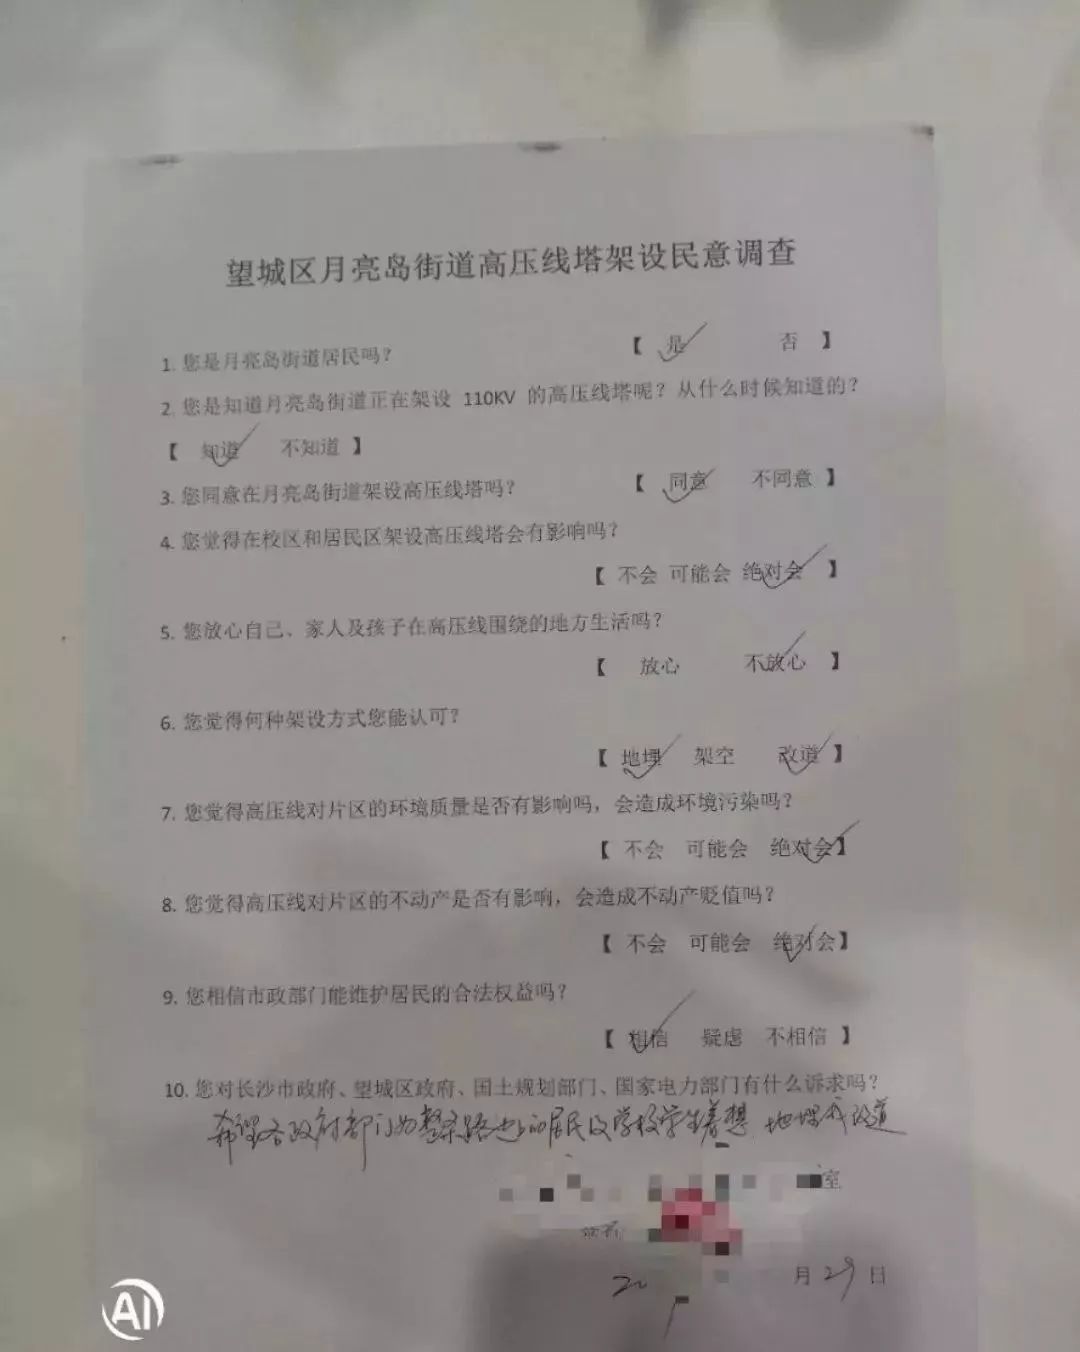 望城区月亮岛街道高压线塔架设民意调查
1. 您是月亮岛街道居民吗？ 【 是 否 】
2. 您是知道月亮岛街道正在架设 110KV 的高压线塔呢？从什么时候知道的？
【 知道 不知道 】
3. 您同意在月亮岛街道架设高压线塔吗？ 【 同意 不同意 】
4. 您觉得在校区和居民区架设高压线塔会有影响吗？
【 不会 可能会 绝对会 】
5. 您放心自己、家人及孩子在高压线围绕的地方生活吗？
【 放心 不放心 】
6. 您觉得何种架设方式您能认可？
【 地埋 架空 改道 】
7. 您觉得高压线对片区的环境质量是否有影响吗，会造成环境污染吗？
【 不会 可能会 绝对会】
8. 您觉得高压线对片区的不动产是否有影响，会造成不动产贬值吗？
【 不会 可能会 绝对会】
9. 您相信市政部门能维护居民的合法权益吗？
【 相信 疑虑 不相信 】
10. 您对长沙市政府、望城区政府、国土规划部门、国家电力部门有什么诉求吗？
希望各政府部门为整条路上的居民及学校学生着想 地埋或改道
室
月 29 日
AI